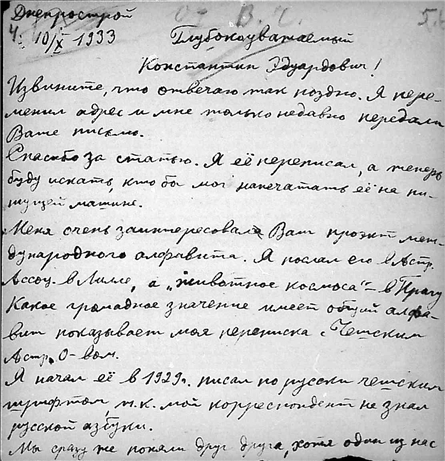 Днепрострой
От В.Ч. 5.
Ч. 10/X 1933 Глубокоуважаемый
Константин Эдуардович!
Извините, что отвечаю так поздно. Я пере-
менил адрес и мне только недавно передали
Ваше письмо.
Спасибо за статью. Я её переписал, а теперь
буду искать, кто бы мог напечатать её на пи-
шущей машине.
Меня очень заинтересовал Ваш проэкт меж-
дународного алфавита. Я послал его в Астр.
Ассоц. в Лилле, а „животное космоса" – в Прагу
Какое громадное значение имеет общий алфа-
вит показывает моя переписка с Чешским
Астр. О-вом.
Я начал её в 1929г. писал по русски чешским
шрифтом, т.к. мой корреспондент не знал
русской азбуки.
Мы сразу же поняли друг друга, хотя один из нас